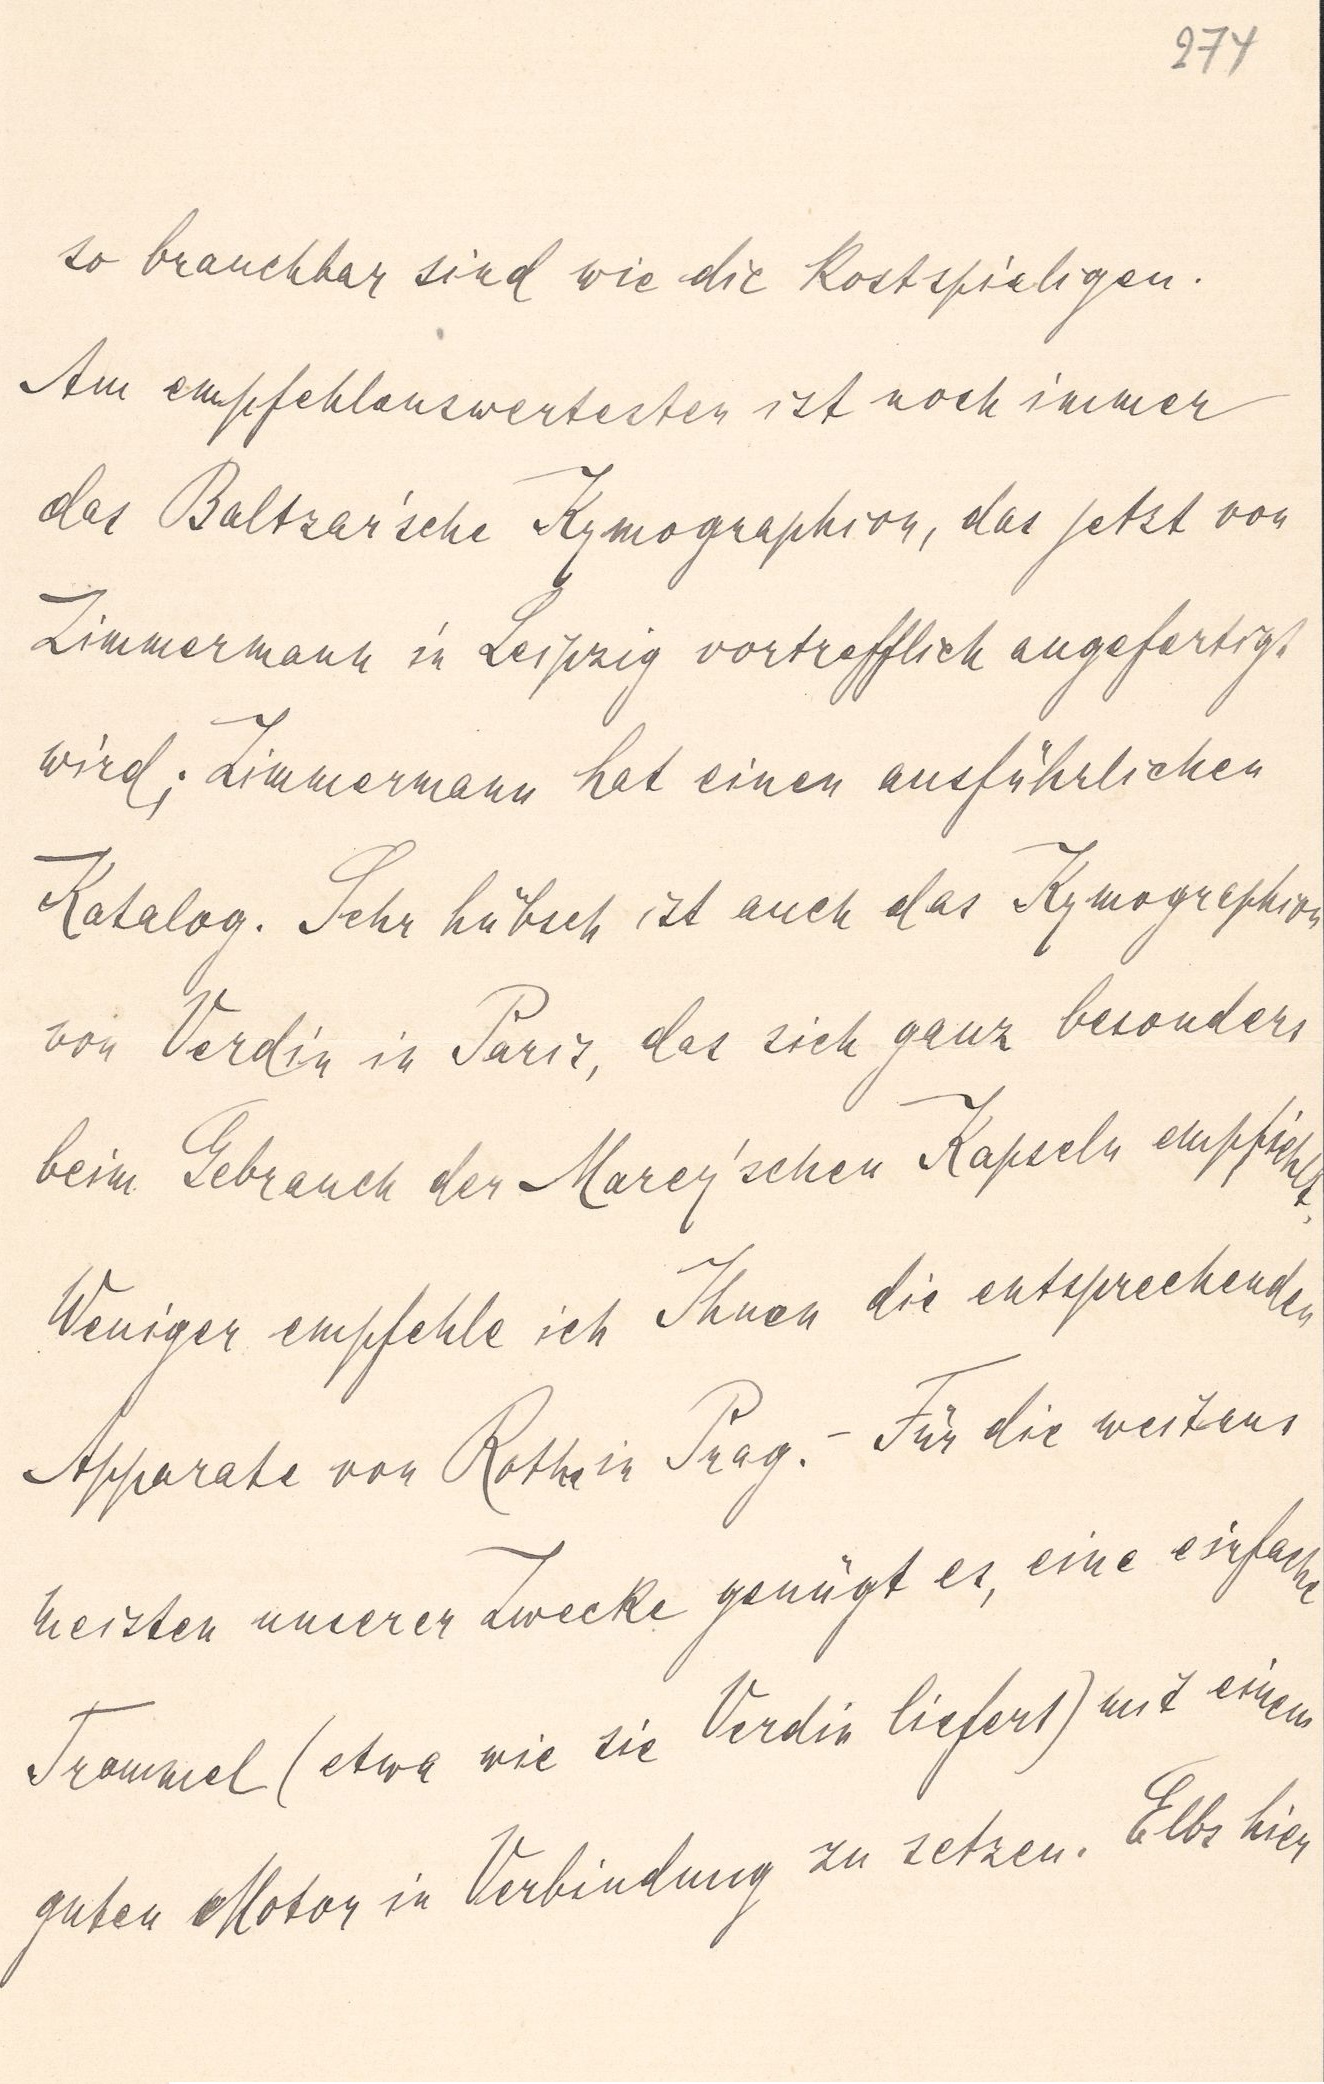 274
so brauchbar sind wie die kostspieligen.
Am empfehlenswertesten ist noch immer
das Baltzar'sche Kymographion, das jetzt von
Zimmermann in Leipzig vortrefflich angefertigt
wird; Zimmermann hat einen ausführlichen
Katalog. Sehr hübsch ist auch das Kymographion
von Verdin in Paris, das sich ganz besonders
beim Gebrauch der Marey'schen Kapseln empfiehlt.
Weniger empfehle ich Ihnen die entsprechenden
Apparate von Rothe in Prag. – Für die weitaus
meisten unserer Zwecke genügt es, eine einfache
Trommel (etwa wie sie Verdin liefert) mit einem
guten Motor in Verbindung zu setzen. Elbs hier